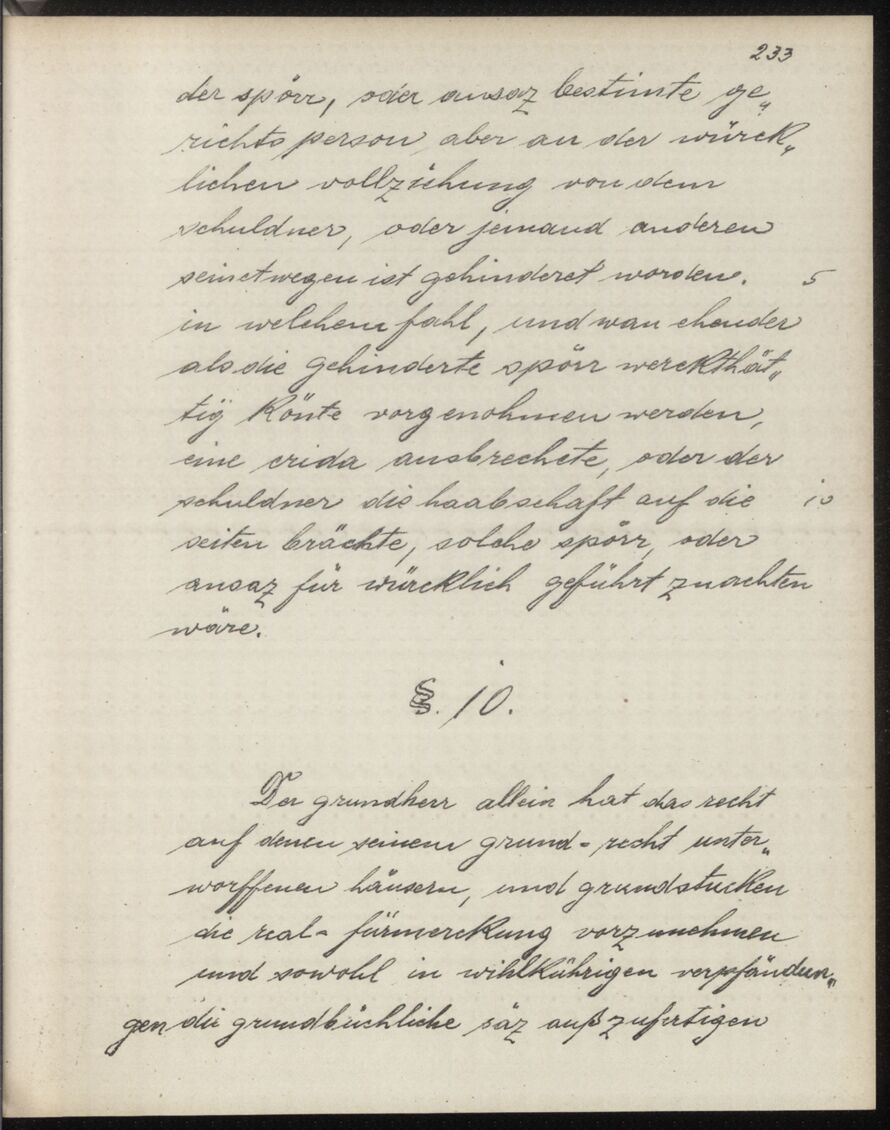 233
der spörr, oder ansaz bestimte ge„
richts person, aber an der würck„
lichen vollzihung von dem
schuldner, oder jemand anderen
seinetwegen ist gehinderet worden. 5
in welchem fahl, und wan ehender
als die gehinderte spörr werckthät„
tig könte vorgenohmen werden,
eine crida ausbrechete, oder der
schuldner die haabschaft auf die 10
seiten brächte, solche spörr, oder
ansaz für würcklich geführt zuachten
wäre.
§. 10.
Der grundherr allein hat das recht
auf denen seinem grund-recht unter„
worffenen häusern, und grundstucken
die real-fürmerckung vorzunehmen
und sowohl in wihlkührigen verpfändun„
gen die grundbüchliche säz außzufertigen